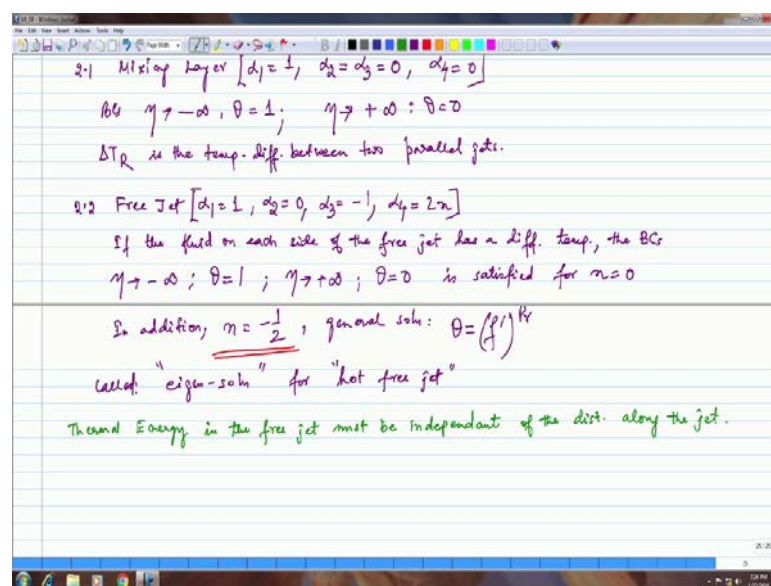 File Edit View Insert Actions Tools Help
Page Width
2.1 Mixing Layer [α₁ = 1, α₂ = α₃ = 0, α₄ = 0]
BCs η → -∞, θ = 1; η → +∞ : θ = 0
ΔT_R is the temp. diff. between two parallel jets.
2.2 Free Jet [α₁ = 1, α₂ = 0, α₃ = -1, α₄ = 2n]
If the fluid on each side of the free jet has a diff. temp., the BCs
η → -∞ ; θ = 1 ; η → +∞ ; θ = 0 is satisfied for n = 0
In addition, n = -1/2 , general soln : θ = (f′)^Pr
called: "eigen-soln" for "hot free jet"
Thermal Energy in the free jet must be independant of the dist. along the jet.
25/25